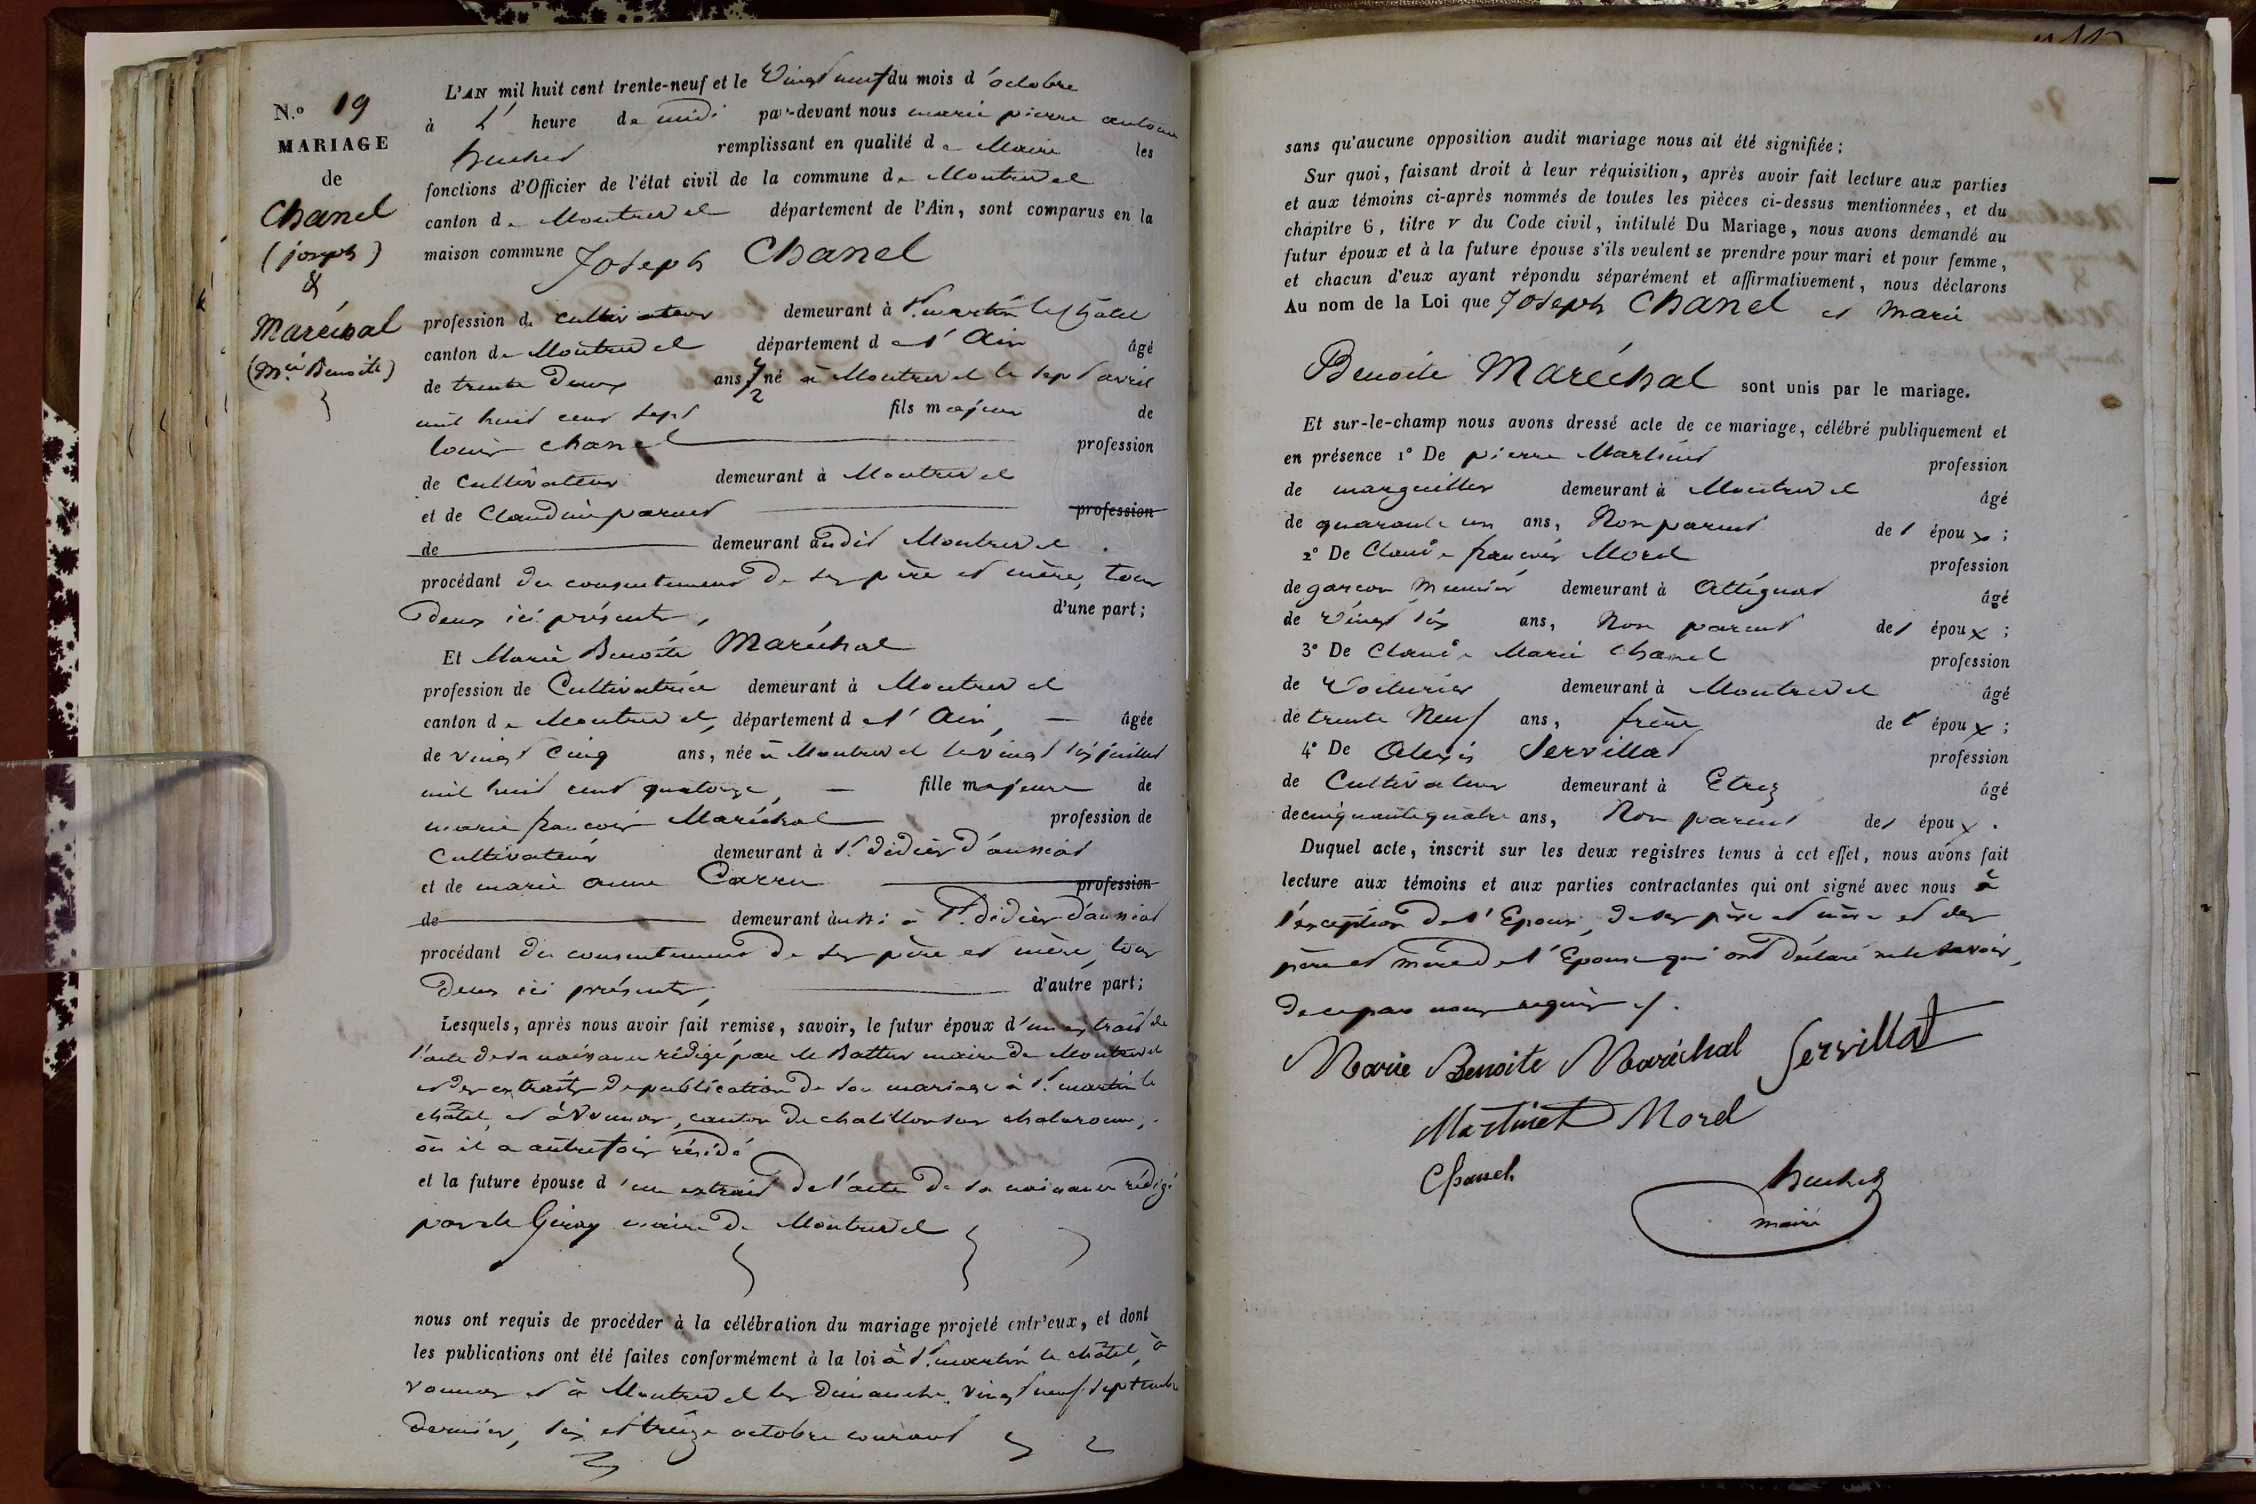 N.º 19
MARIAGE
de
Chanel
(joseph)
&
Maréchal
(Mie Benoite)
L'AN mil huit cent trente-neuf et le Vingt neuf du mois d'octobre
à L' heure de midi par-devant nous marie pierre antoine
huchet remplissant en qualité de Maire les
fonctions d'Officier de l'état civil de la commune de Montrevel
canton de Montrevel département de l'Ain, sont comparus en la
maison commune Joseph Chanel
profession de cultivateur demeurant à St. martin le Châtel
canton de Montrevel département de l'Ain âgé
de trente deux ans ½ né à Montrevel le sept avril
mil huit cent sept fils majeur de
louis chanel profession
de Cultivateur demeurant à Montrevel
et de Claudine parent profession
de demeurant audit Montrevel.
procédant du consentement de ses père et mère, tous
deux ici présents, d'une part;
Et Marie Benoite Maréchal
profession de Cultivatrice demeurant à Montrevel
canton de Montrevel, département de l'Ain, âgée
de vingt cinq ans, née à Montrevel le vingt six juillet
mil huit cent quatorze, fille majeure de
marie françois Maréchal profession de
Cultivateur demeurant à St. didier d'aussiat
et de marie anne Carru profession
de demeurant aussi à St. didier d'aussiat
procédant du consentement de ses père et mère, tous
deux ici présents, d'autre part;
Lesquels, après nous avoir fait remise, savoir, le futur époux d'un extrait de
l'acte de sa naissance rédigé par Mr Battur maire de Montrevel
et des extraits de publication de son mariage à St. martin le
châtel, et à Vonnas, canton de chatillon sur chalaronne,
où il a autrefois résidé
et la future épouse d'un extrait de l'acte de sa naissance rédigé
par Mr Giroy maire de Montrevel
nous ont requis de procéder à la célébration du mariage projeté entr'eux, et dont
les publications ont été faites conformément à la loi à St. martin le châtel, à
vonnas et à Montrevel les dimanche vingt neuf septembre
dernier, six et treize octobre courant
sans qu'aucune opposition audit mariage nous ait été signifiée;
Sur quoi, faisant droit à leur réquisition, après avoir fait lecture aux parties
et aux témoins ci-après nommés de toutes les pièces ci-dessus mentionnées, et du
chapitre 6, titre v du Code civil, intitulé Du Mariage, nous avons demandé au
futur époux et à la future épouse s'ils veulent se prendre pour mari et pour femme,
et chacun d'eux ayant répondu séparément et affirmativement, nous déclarons
Au nom de la Loi que Joseph Chanel et Marie
Benoite Maréchal sont unis par le mariage.
Et sur-le-champ nous avons dressé acte de ce mariage, célébré publiquement et
en présence 1º De pierre Martinet profession
de marguillier demeurant à Montrevel âgé
de quarante un ans, Non parent des époux;
2º De Claude françois Morel profession
de garçon meunier demeurant à Attignat âgé
de Vingt six ans, Non parent des époux;
3º De Claude Marie Chanel profession
de Voiturier demeurant à Montrevel âgé
de trente Neuf ans, frère de l'époux;
4º De Alexis Servillat profession
de Cultivateur demeurant à Etrez âgé
de cinquante quatre ans, Non parent des époux.
Duquel acte, inscrit sur les deux registres tenus à cet effet, nous avons fait
lecture aux témoins et aux parties contractantes qui ont signé avec nous à
l'exception de l'Epoux, de ses père et mère et des
père et mère de l'Epouse qui ont déclaré ne le savoir,
de ce par nous requis /.
Marie Benoite Maréchal Servillat
Martinet Morel
Chanel
huchet
maire